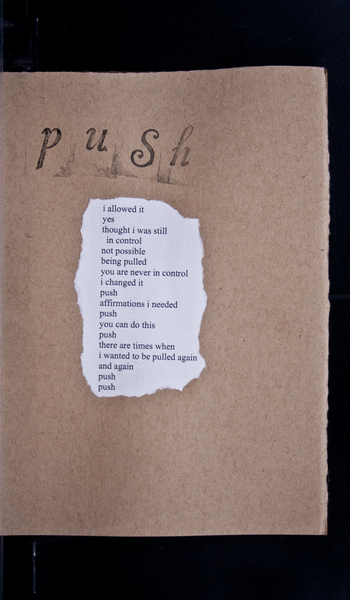 push
i allowed it
yes
thought i was still
in control
not possible
being pulled
you are never in control
i changed it
push
affirmations i needed
push
you can do this
push
there are times when
i wanted to be pulled again
and again
push
push